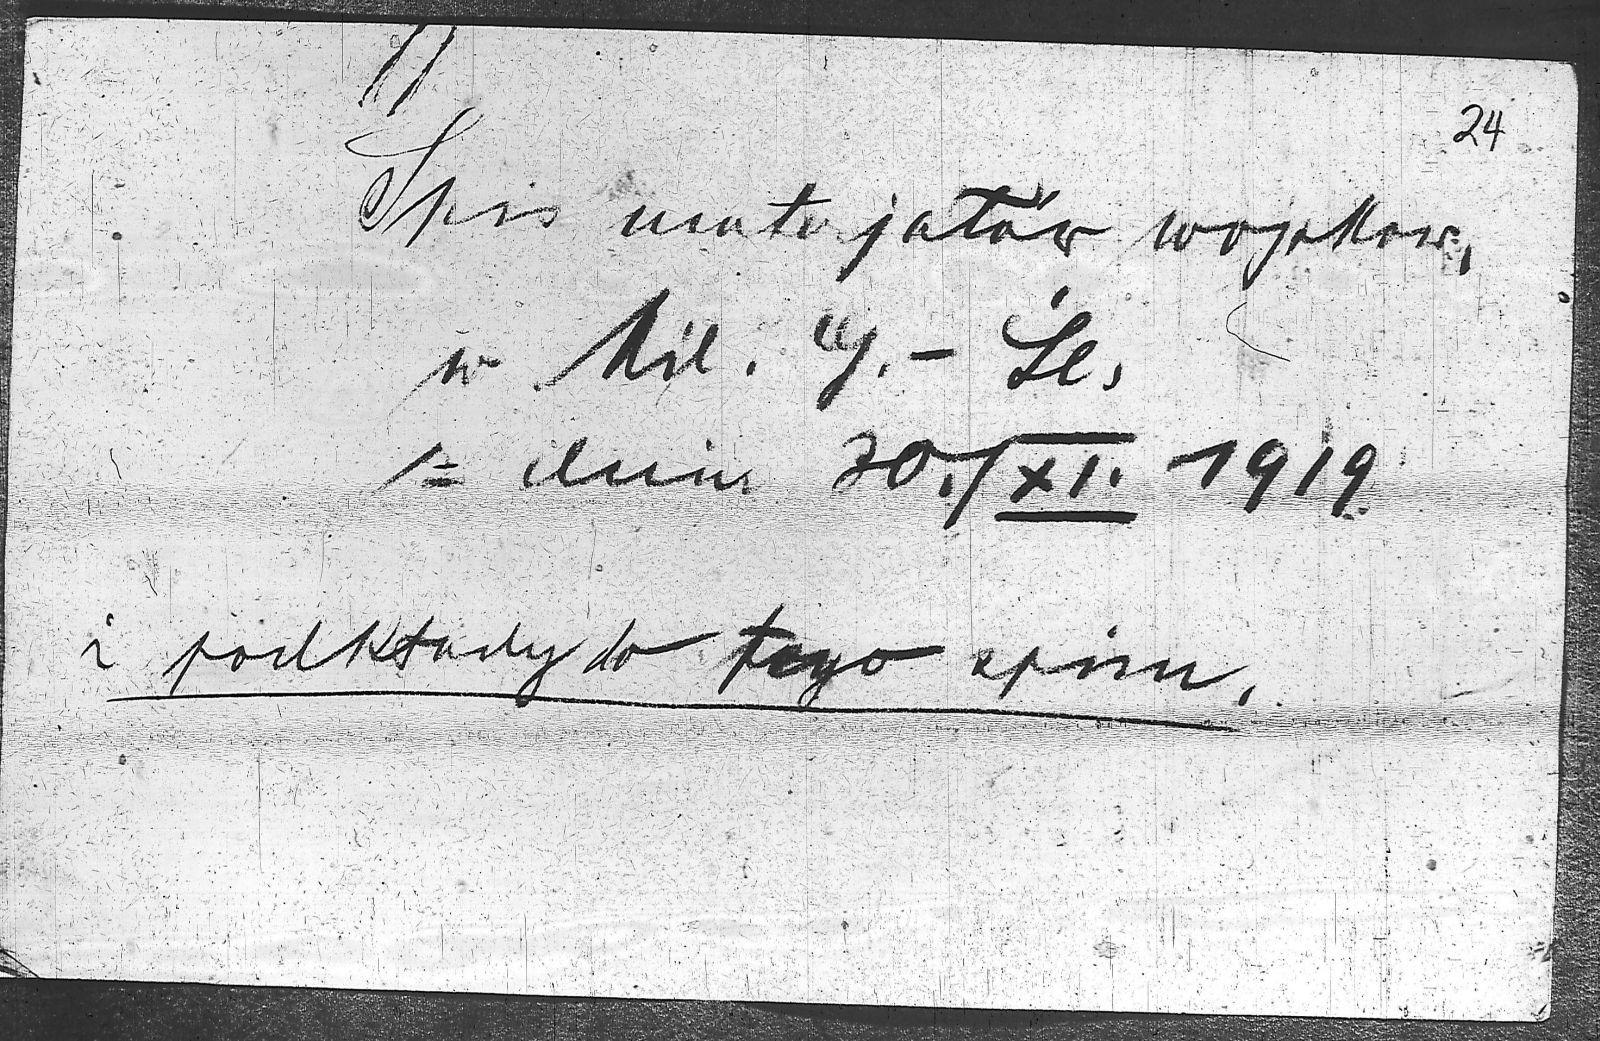 24
Spis materjałów wojskow.
w Kil. G.-Śl.
z dnia 30./XI. 1919
i podkłady do tego spisu.